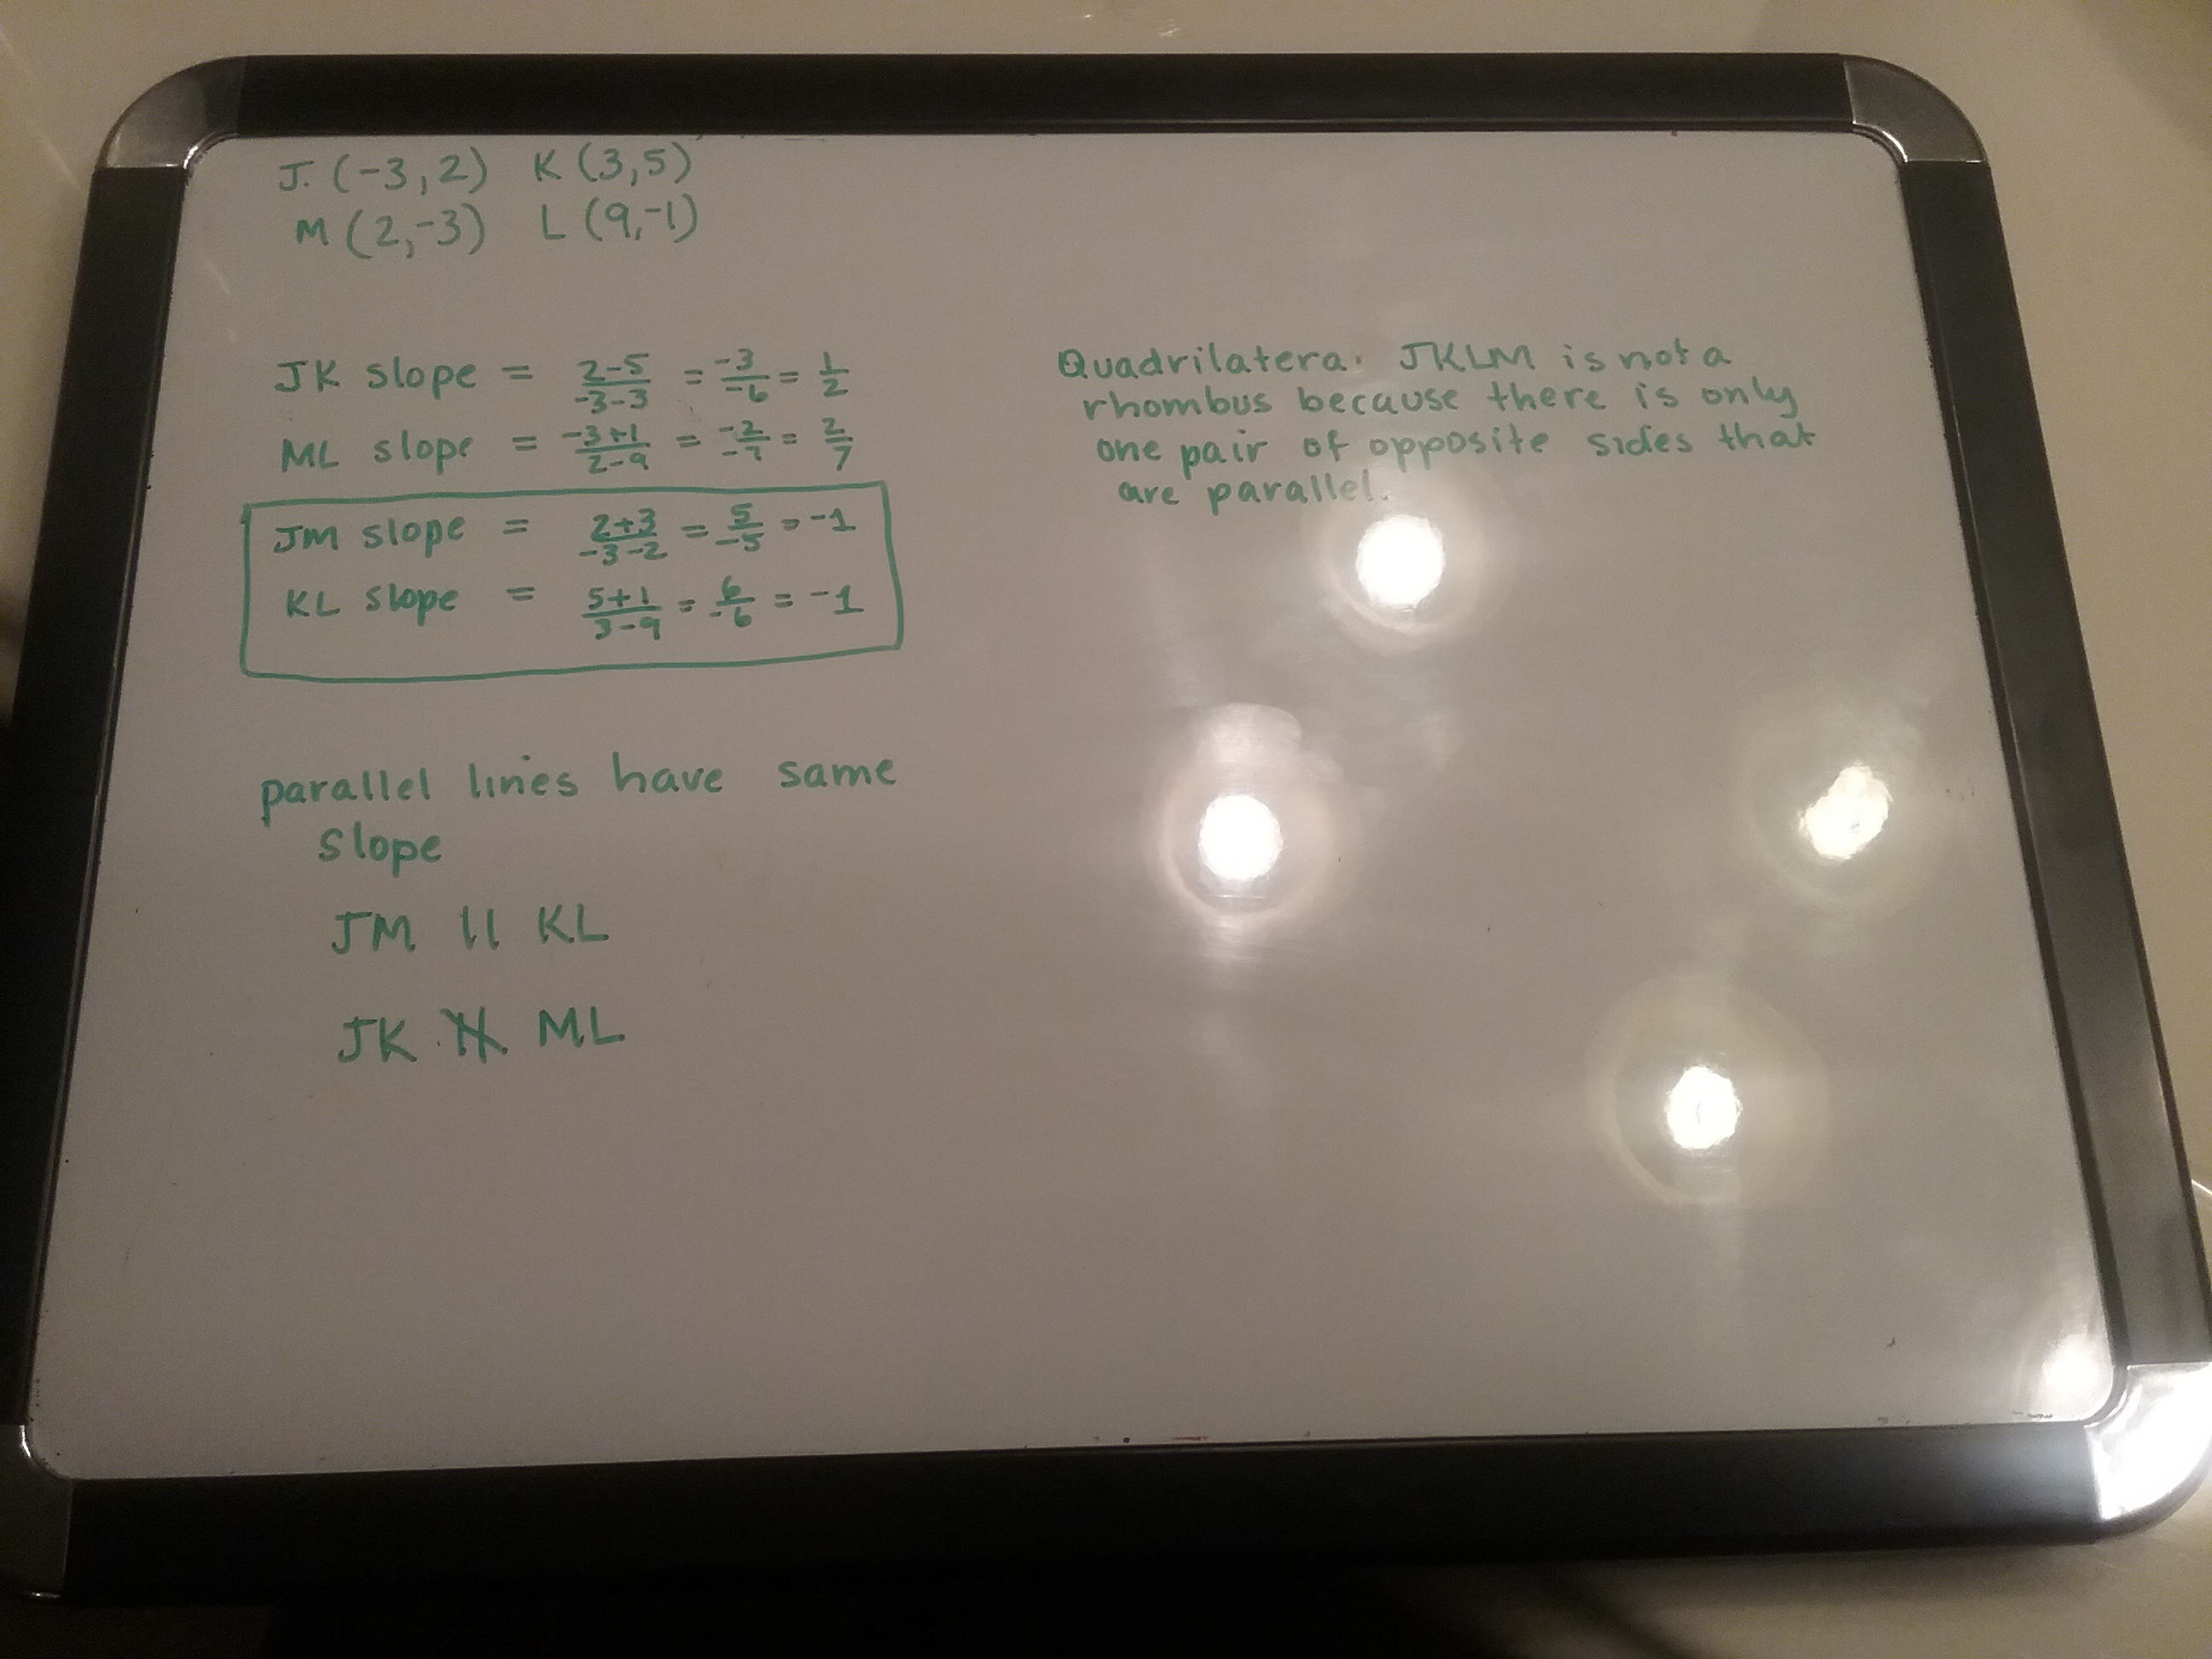 J. (-3,2) K (3,5)
M (2,-3) L (9,-1)
JK slope = 2-5/-3-3 = -3/-6 = 1/2
ML slope = -3+1/2-9 = -2/-7 = 2/7
JM slope = 2+3/-3-2 = 5/-5 = -1
KL slope = 5+1/3-9 = 6/-6 = -1
parallel lines have same
slope
JM || KL
JK ∦ ML
Quadrilateral JKLM is not a
rhombus because there is only
one pair of opposite sides that
are parallel.